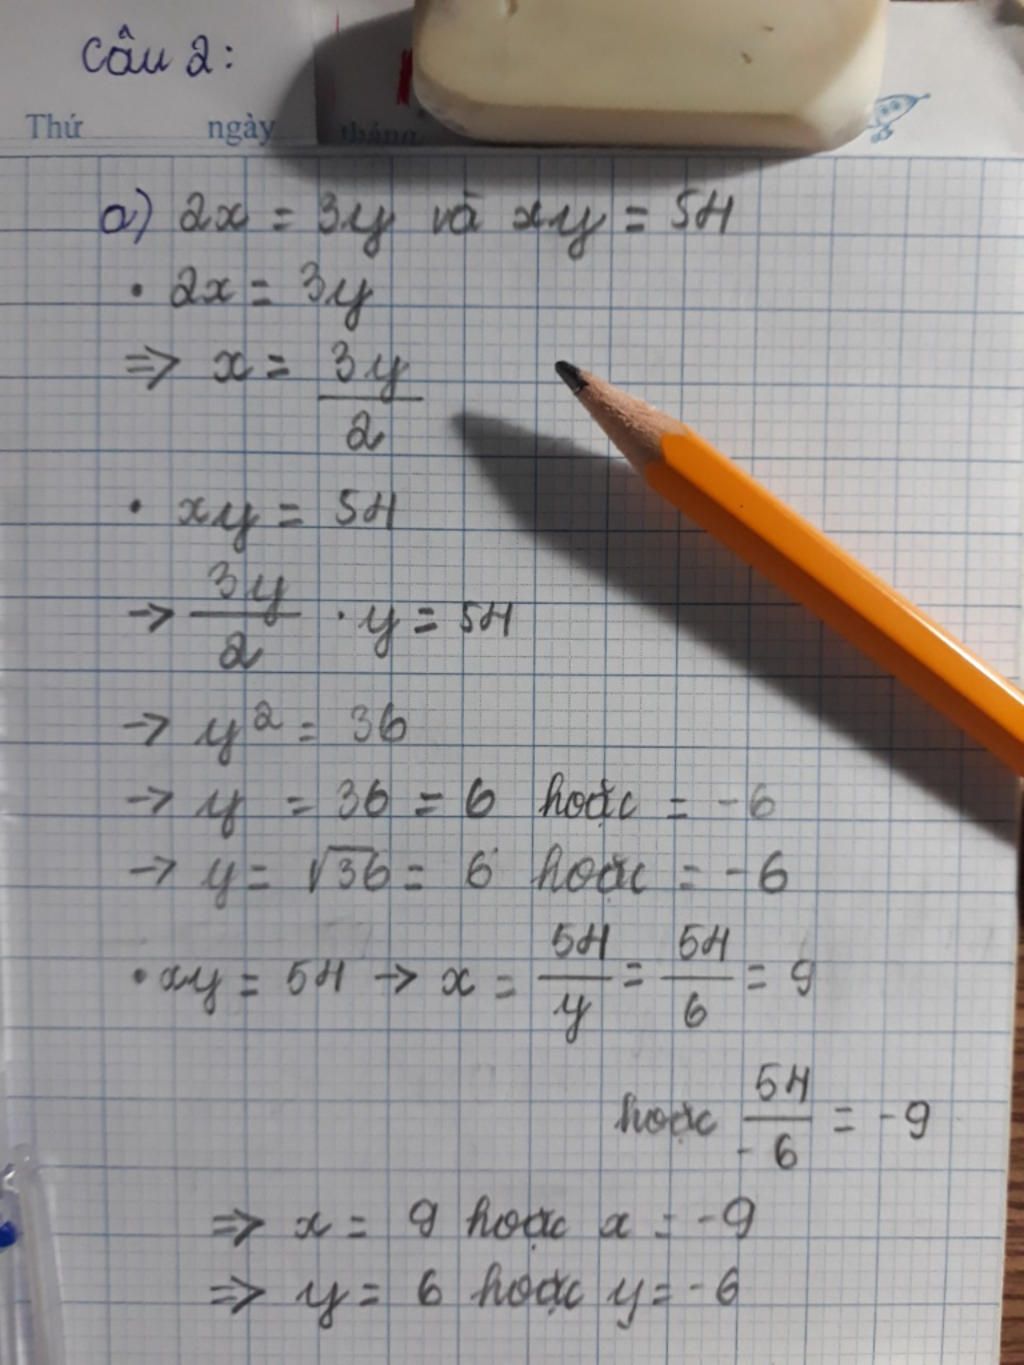 Câu 2:
Thứ ngày tháng
a) 2x = 3y và xy = 54
• 2x = 3y
=> x = 3y/2
• xy = 54
-> 3y/2 · y = 54
-> y² = 36
-> y = 36 = 6 hoặc = -6
-> y = √36 = 6 hoặc = -6
• xy = 54 -> x = 54/y = 54/6 = 9
hoặc 54/-6 = -9
=> x = 9 hoặc x = -9
=> y = 6 hoặc y = -6